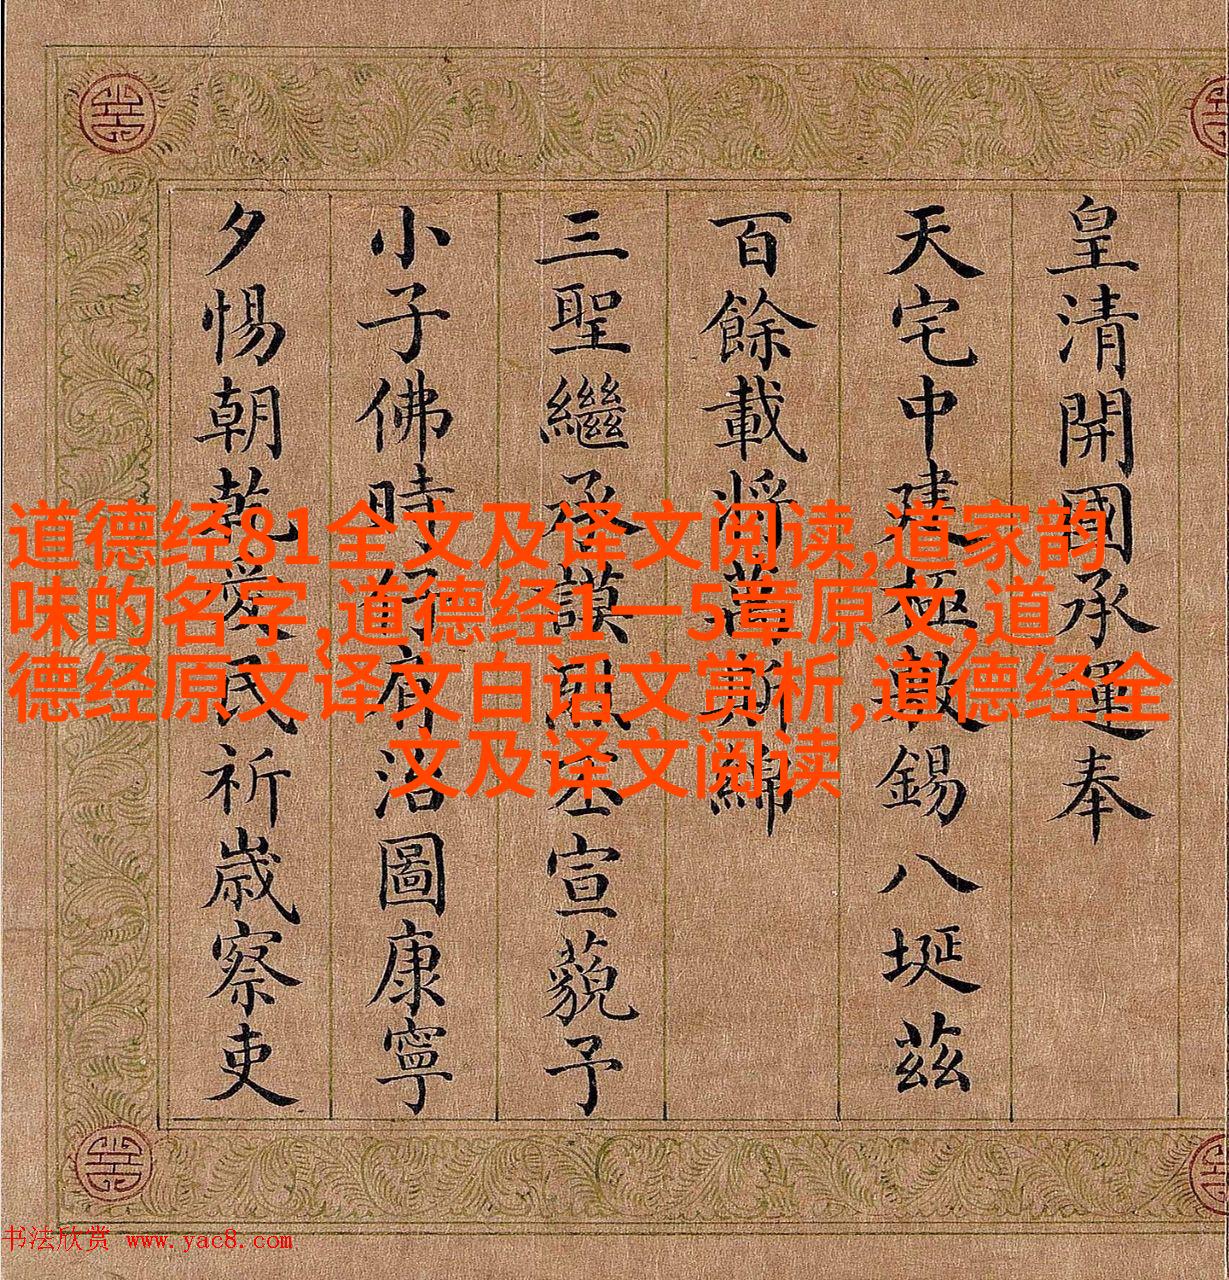 皇清開國承運奉
天宅中建極敷錫八埏茲
百餘載將斯綿
三聖繼承謨丕宣藐予
小子佛時仔肩治圖康寧
夕惕朝乾愛民祈歲察吏
道德经81全文及译文阅读,道家韵
味的名字,道德经1一5章原文,道
德经原文译文白话文赏析,道德经全
文及译文阅读
书法欣赏 www.yac8.com